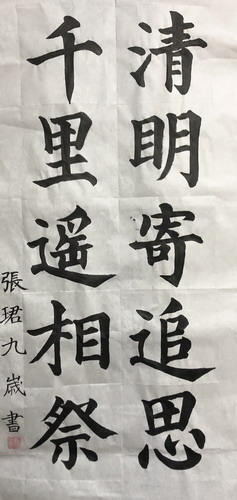 清明寄追思
千里遥相祭
張珺九歲書